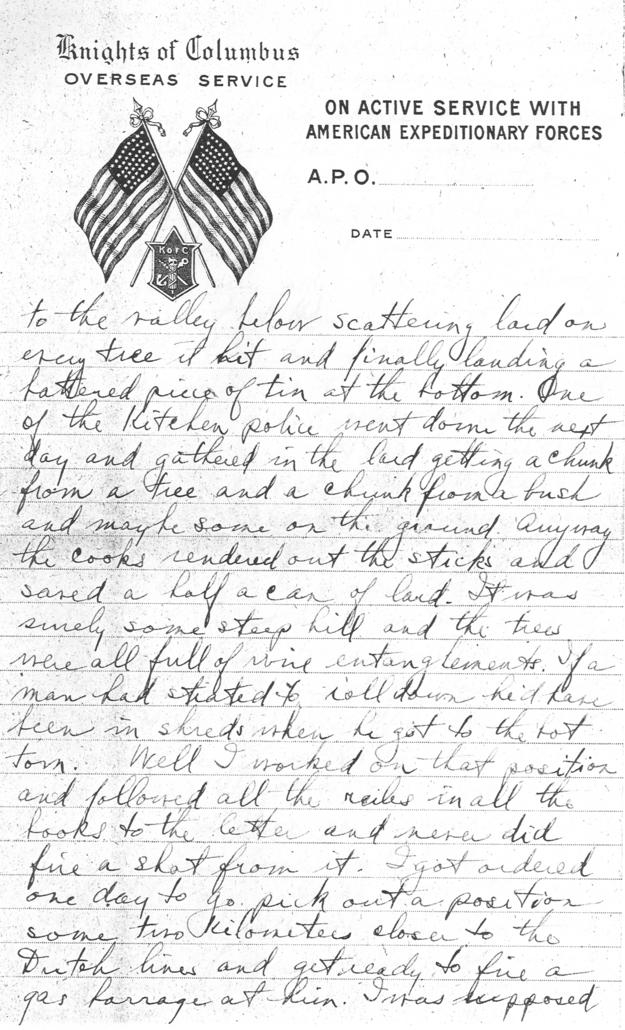 Knights of Columbus
OVERSEAS SERVICE
ON ACTIVE SERVICE WITH
AMERICAN EXPEDITIONARY FORCES
A.P.O.
DATE
K of C
to the valley below scattering lard on
every tree it hit and finally landing a
battered piece of tin at the bottom. One
of the Kitchen police went down the next
day and gathered in the lard getting a chunk
from a tree and a chunk from a bush
and maybe some on the ground Anyway
the cooks rendered out the sticks and
saved a half a can of lard. It was
surely some steep hill and the trees
were all full of wire entanglements. If a
man had started to roll down he'd have
been in shreds when he got to the bot
tom. Well I worked on that position
and followed all the rules in all the
books to the letter and never did
fire a shot from it. I got ordered
one day to go pick out a position
some two Kilometers closer to the
Dutch lines and get ready to fire a
gas barrage at him. I was supposed